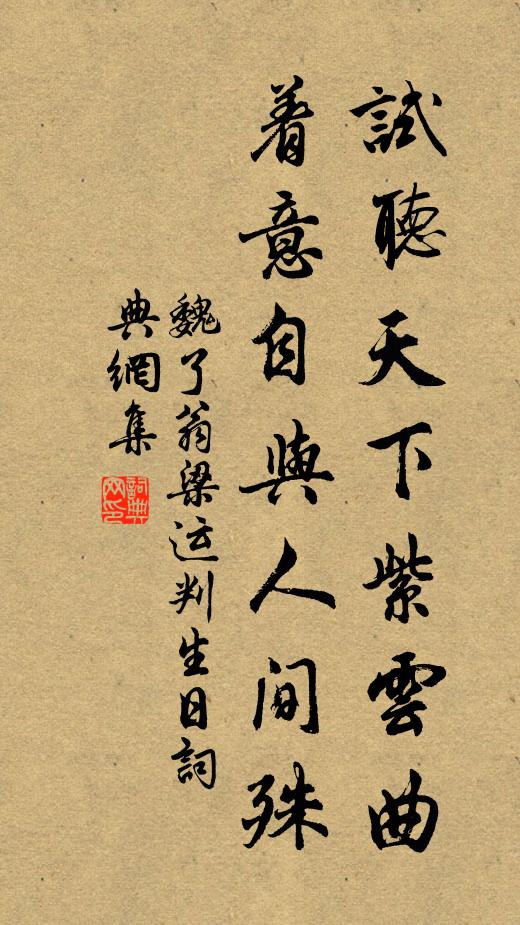 試聽天下紫雲曲
着意自與人间殊
魏了翁梁运判生日詞
典網集
詞典
网印